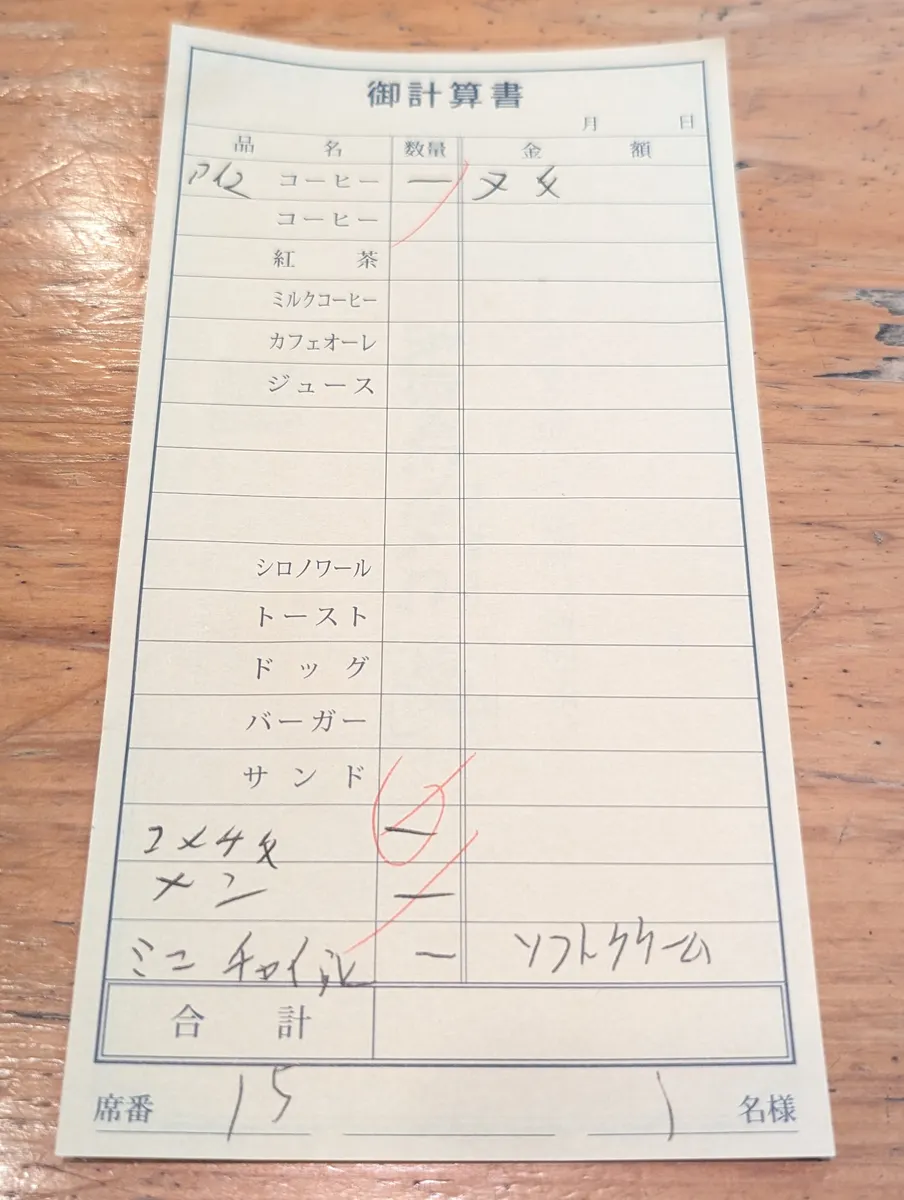 御計算書
月 日
品 名 数量 金 額
アイス コーヒー 一 ヌキ
コーヒー
紅 茶
ミルクコーヒー
カフェオーレ
ジュース
シロノワール
トースト
ドッグ
バーガー
サンド
コメチキ 一
メン 一
ミニ 一 ソフトクリーム
合 計
席番 15 1 名様